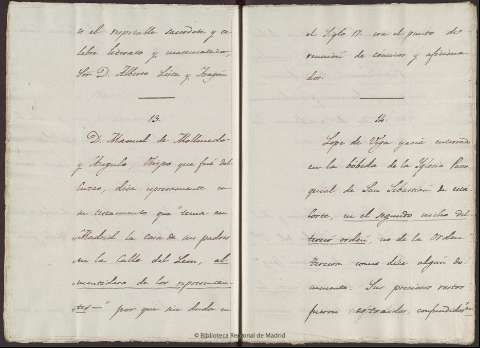 o el respetable sacerdote y ce-
lebre literato y matematico,
Sor D. Alberto Lista y Aragon
13.
D. Manuel de Mollinedo
y Angulo, Obispo que fué del
Cuzco, dice expresamente en
su testamento que "tenia en
Madrid la casa de sus padres
en la Calle del Leon, al
mentidero de los representan-
tes" por que sin duda en
el Siglo 17. era el punto de
reunion de comicos y aficiona-
dos.
14.
Lope de Vega yacia enterrado
en la bobeda de la Yglesia Parro-
quial de San Sebastian de esta
Corte, en el segundo nicho del
tercer orden, no de la Orden
tercera como dice alguno
Sus preciosos restos
fueron extraidos, confundidos
© Biblioteca Regional de Madrid